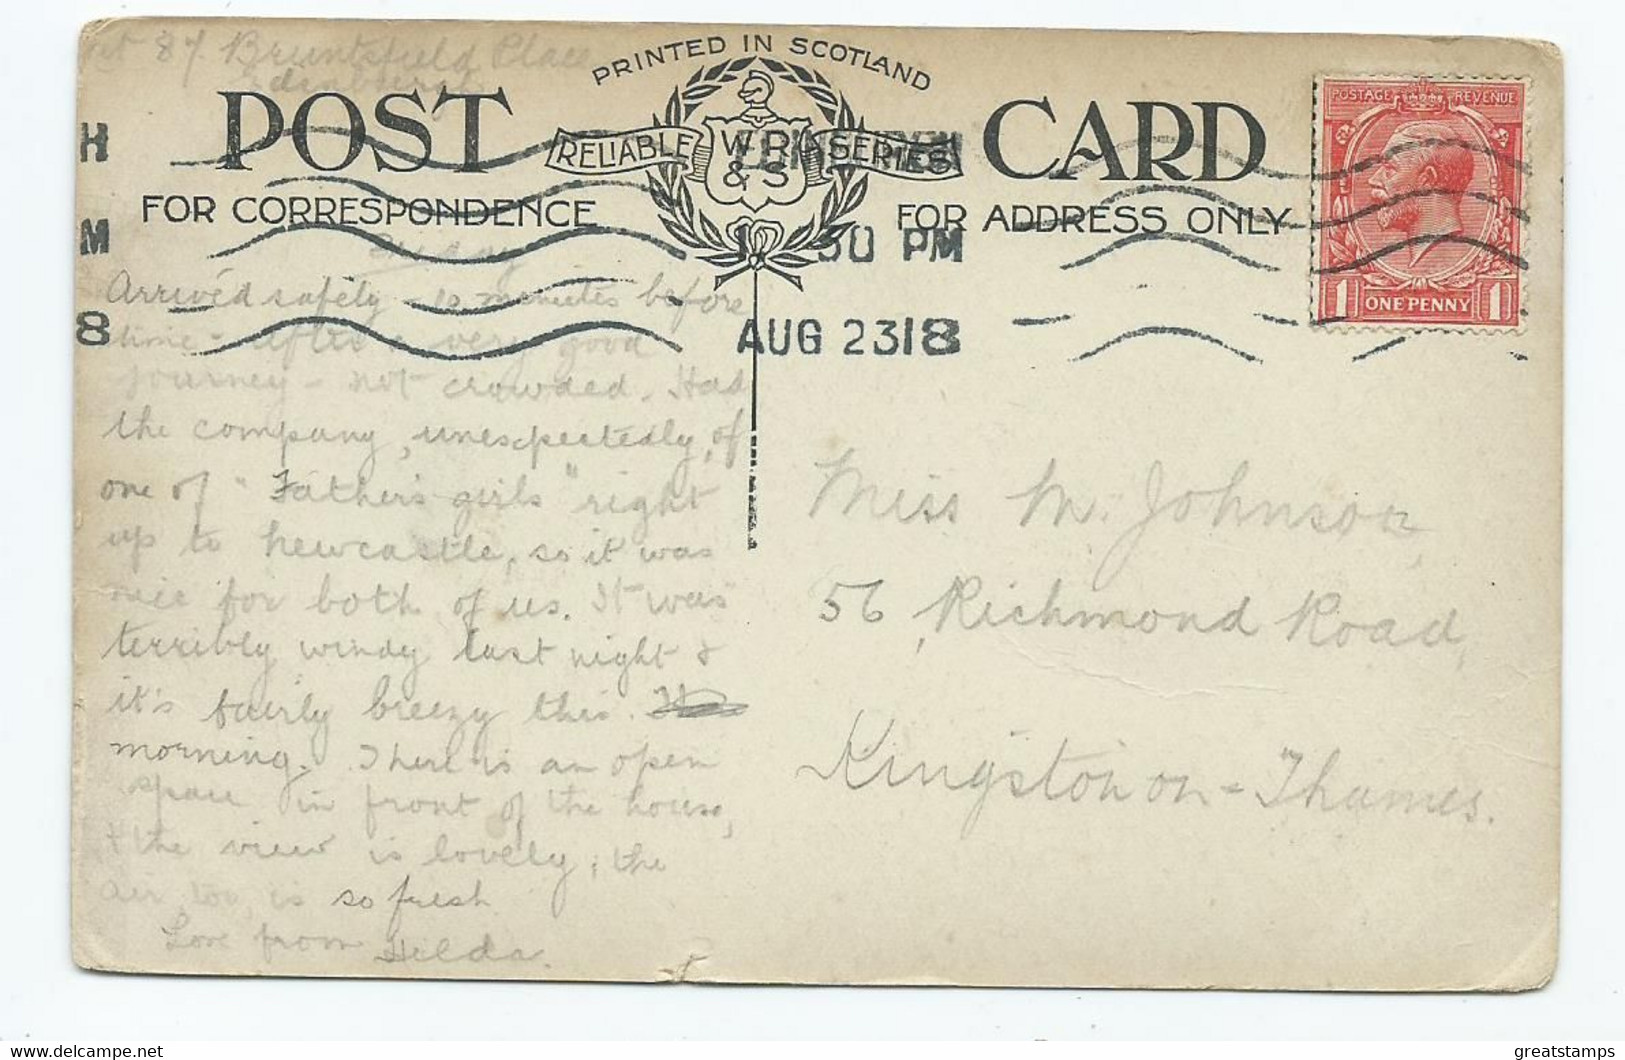 at 87 Bruntsfield Place
Edinburgh
PRINTED IN SCOTLAND
POST CARD
RELIABLE W.R. & S SERIES
FOR CORRESPONDENCE
FOR ADDRESS ONLY
POSTAGE REVENUE
1 ONE PENNY 1
H
M
8
30 PM
AUG 23 18
Friday
Arrived safely - 10 minutes before
time - after a very good
journey - not crowded. Had
the company, unexpectedly, of
one of "Father's girls" right
up to Newcastle, so it was
nice for both of us. It was
terribly windy last night &
it's fairly breezy this
morning. There is an open
space in front of the house,
& the view is lovely; the
air, too, is so fresh.
Love from Hilda.
Miss M. Johnson,
56, Richmond Road,
Kingston on-Thames.
greatstamps